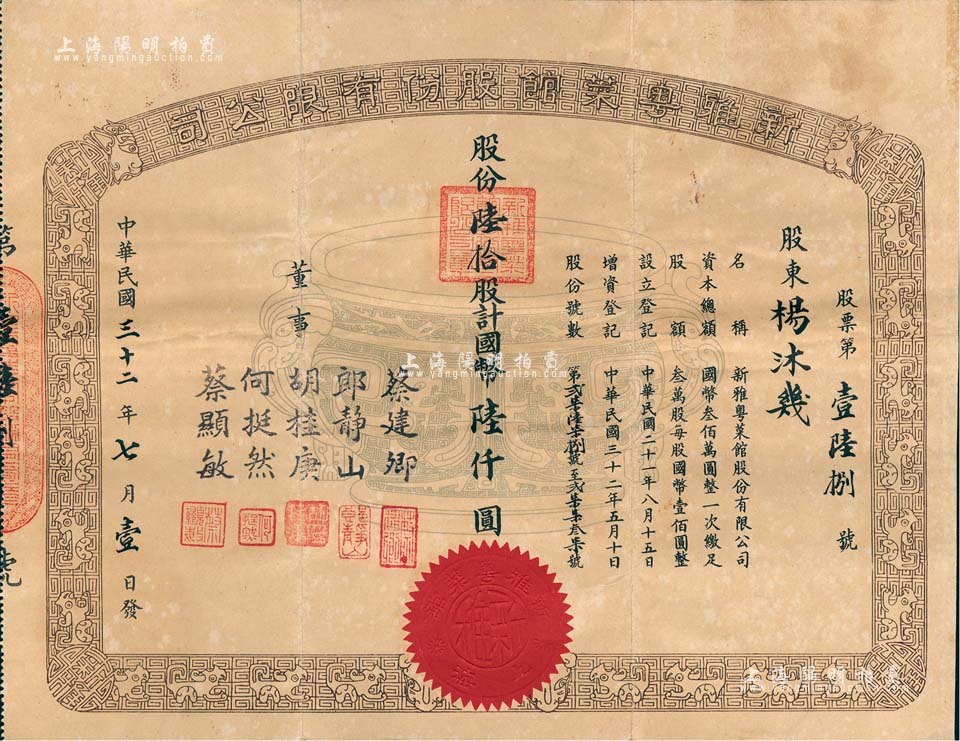 上海陽明拍賣
www.yangmingauction.com
新雅粵菜館股份有限公司
股票第 壹陸捌 號
股東 楊沐幾
名稱 新雅粵菜館股份有限公司
資本總額 國幣叁佰萬圓整一次繳足
股額 叁萬股每股國幣壹佰圓整
設立登記 中華民國二十一年八月十五日
增資登記 中華民國三十二年五月十日
股份號數
股份陸拾股計國幣陸仟圓
董事
蔡建卿
郎靜山
胡桂庚
何挺然
蔡顯敏
中華民國三十二年七月壹日發
上海陽明拍賣
www.yangmingauction.com
上海陽明拍賣